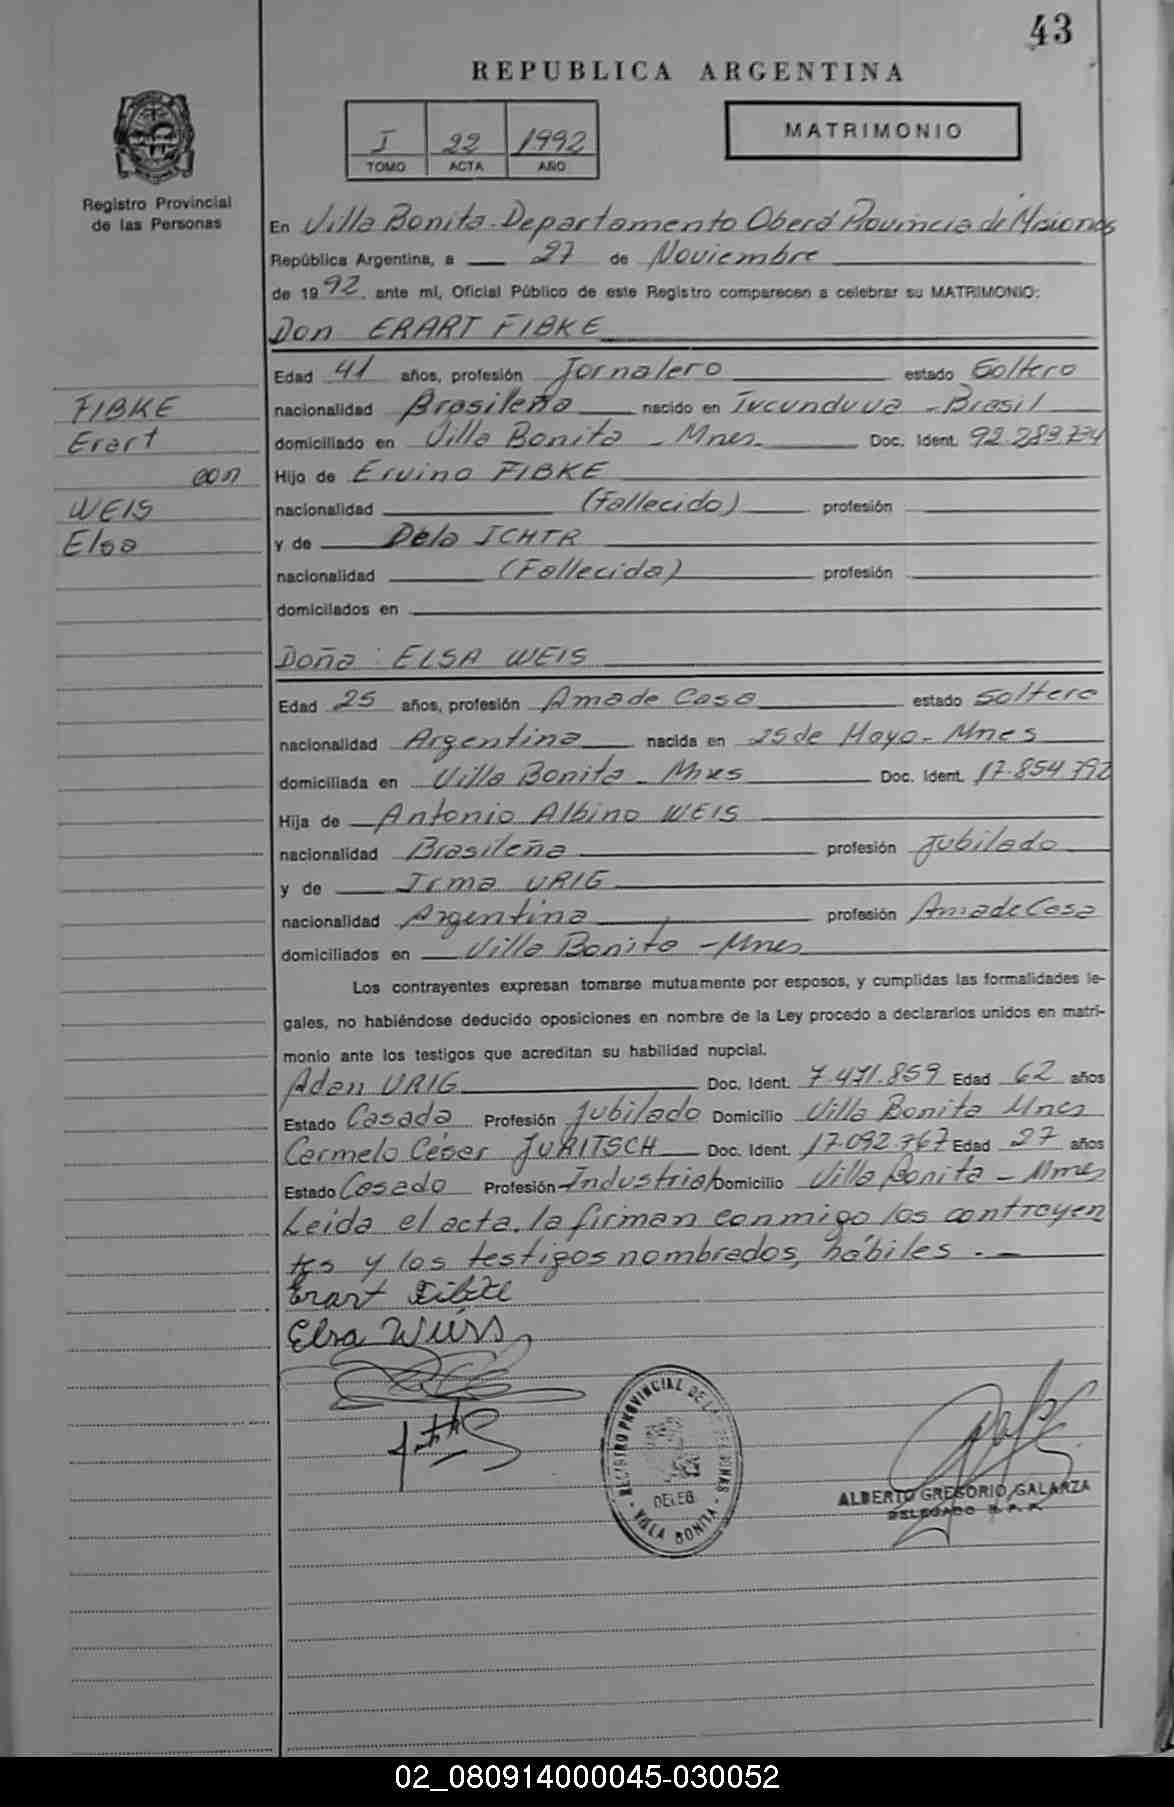 43
REPUBLICA ARGENTINA
I 22 1992
TOMO ACTA AÑO
MATRIMONIO
Registro Provincial
de las Personas
En Villa Bonita - Departamento Oberá Provincia de Misiones
República Argentina, a 27 de Noviembre
de 1992, ante mí, Oficial Público de este Registro comparecen a celebrar su MATRIMONIO:
Don ERART FIBKE
Edad 41 años, profesión Jornalero estado Soltero
nacionalidad Brasileña nacido en Tucunduva - Brasil
domiciliado en Villa Bonita - Mnes. Doc. Ident. 92.283.734
Hijo de Ervino FIBKE
nacionalidad (Fallecido) profesión
y de Dela ICHTR
nacionalidad (Fallecida) profesión
domiciliados en
FIBKE
Erart
con
WEIS
Elsa
Doña : ELSA WEIS
Edad 25 años, profesión Ama de Casa estado Soltera
nacionalidad Argentina nacida en 25 de Mayo - Mnes
domiciliada en Villa Bonita - Mnes Doc. Ident. 17.854.792
Hija de Antonio Albino WEIS
nacionalidad Brasileña profesión Jubilado
y de Irma URIG
nacionalidad Argentina profesión Ama de Casa
domiciliados en Villa Bonita - Mnes
Los contrayentes expresan tomarse mutuamente por esposos, y cumplidas las formalidades le-
gales, no habiéndose deducido oposiciones en nombre de la Ley procedo a declararlos unidos en matri-
monio ante los testigos que acreditan su habilidad nupcial.
Adan URIG Doc. Ident. 7.471.859 Edad 62 años
Estado Casado Profesión Jubilado Domicilio Villa Bonita Mnes
Carmelo César JURITSCH Doc. Ident. 17.092.767 Edad 27 años
Estado Casado Profesión Industrial Domicilio Villa Bonita - Mnes
Leida el acta, la firman conmigo los contrayen
tes y los testigos nombrados, hábiles . -
Erart Fibke
Elsa Weiss
REGISTRO PROVINCIAL DE LAS PERSONAS
DELEG.
- VILLA BONITA -
ALBERTO GREGORIO GALARZA
DELEGADO R. P. P.
02_080914000045-030052